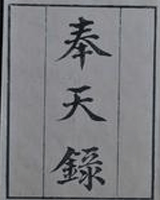 奉天錄